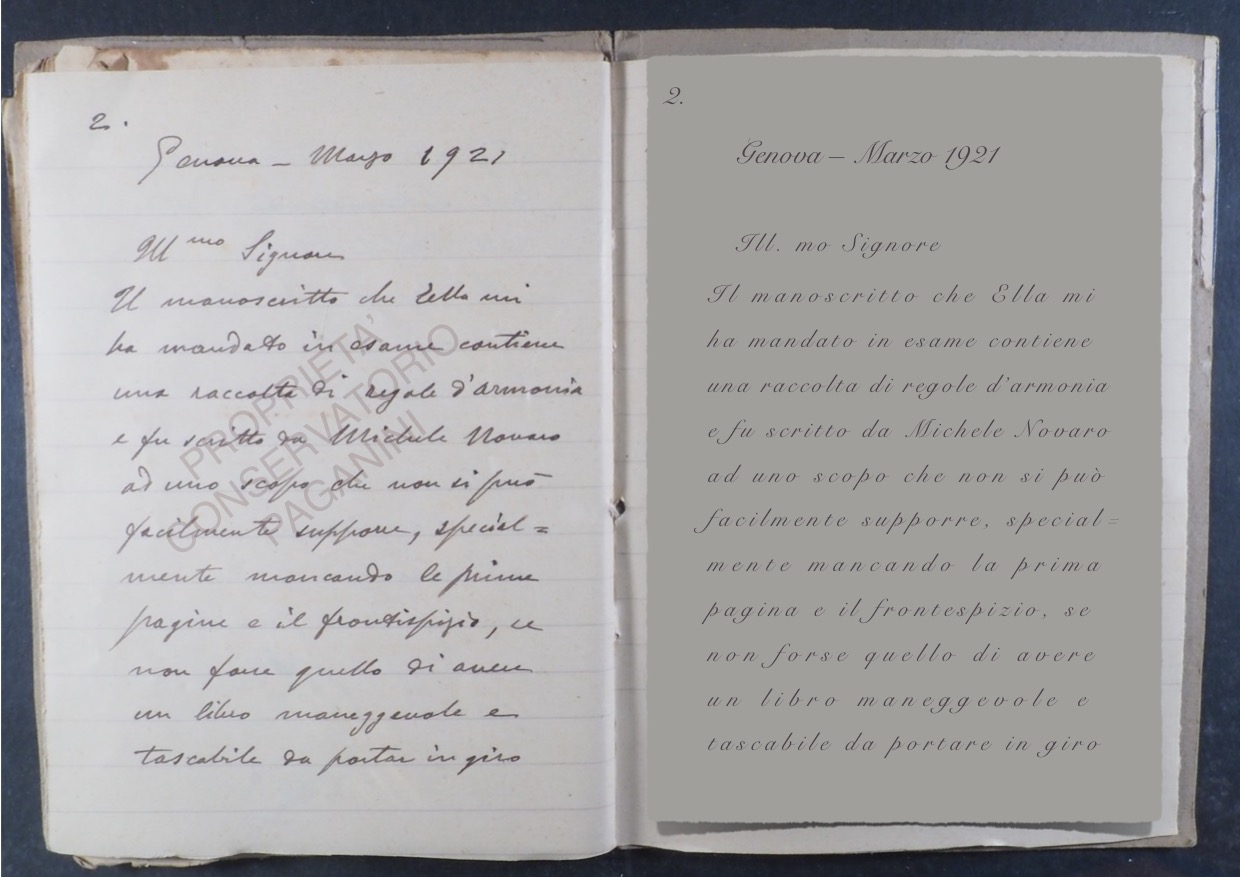 2.
Genova – Marzo 1921
Ill mo Signore
Il manoscritto che Ella mi
ha mandato in esame contiene
una raccolta di regole d'armonia
e fu scritto da Michele Novaro
ad uno scopo che non si può
facilmente supporre, special=
mente mancando le prime
pagine e il frontispizio, se
non forse quello di avere
un libro maneggevole e
tascabile da portar in giro
PROPRIETA'
CONSERVATORIO
PAGANINI
2.
Genova – Marzo 1921
Ill. mo Signore
Il manoscritto che Ella mi
ha mandato in esame contiene
una raccolta di regole d'armonia
e fu scritto da Michele Novaro
ad uno scopo che non si può
facilmente supporre, special=
mente mancando la prima
pagina e il frontespizio, se
non forse quello di avere
un libro maneggevole e
tascabile da portare in giro